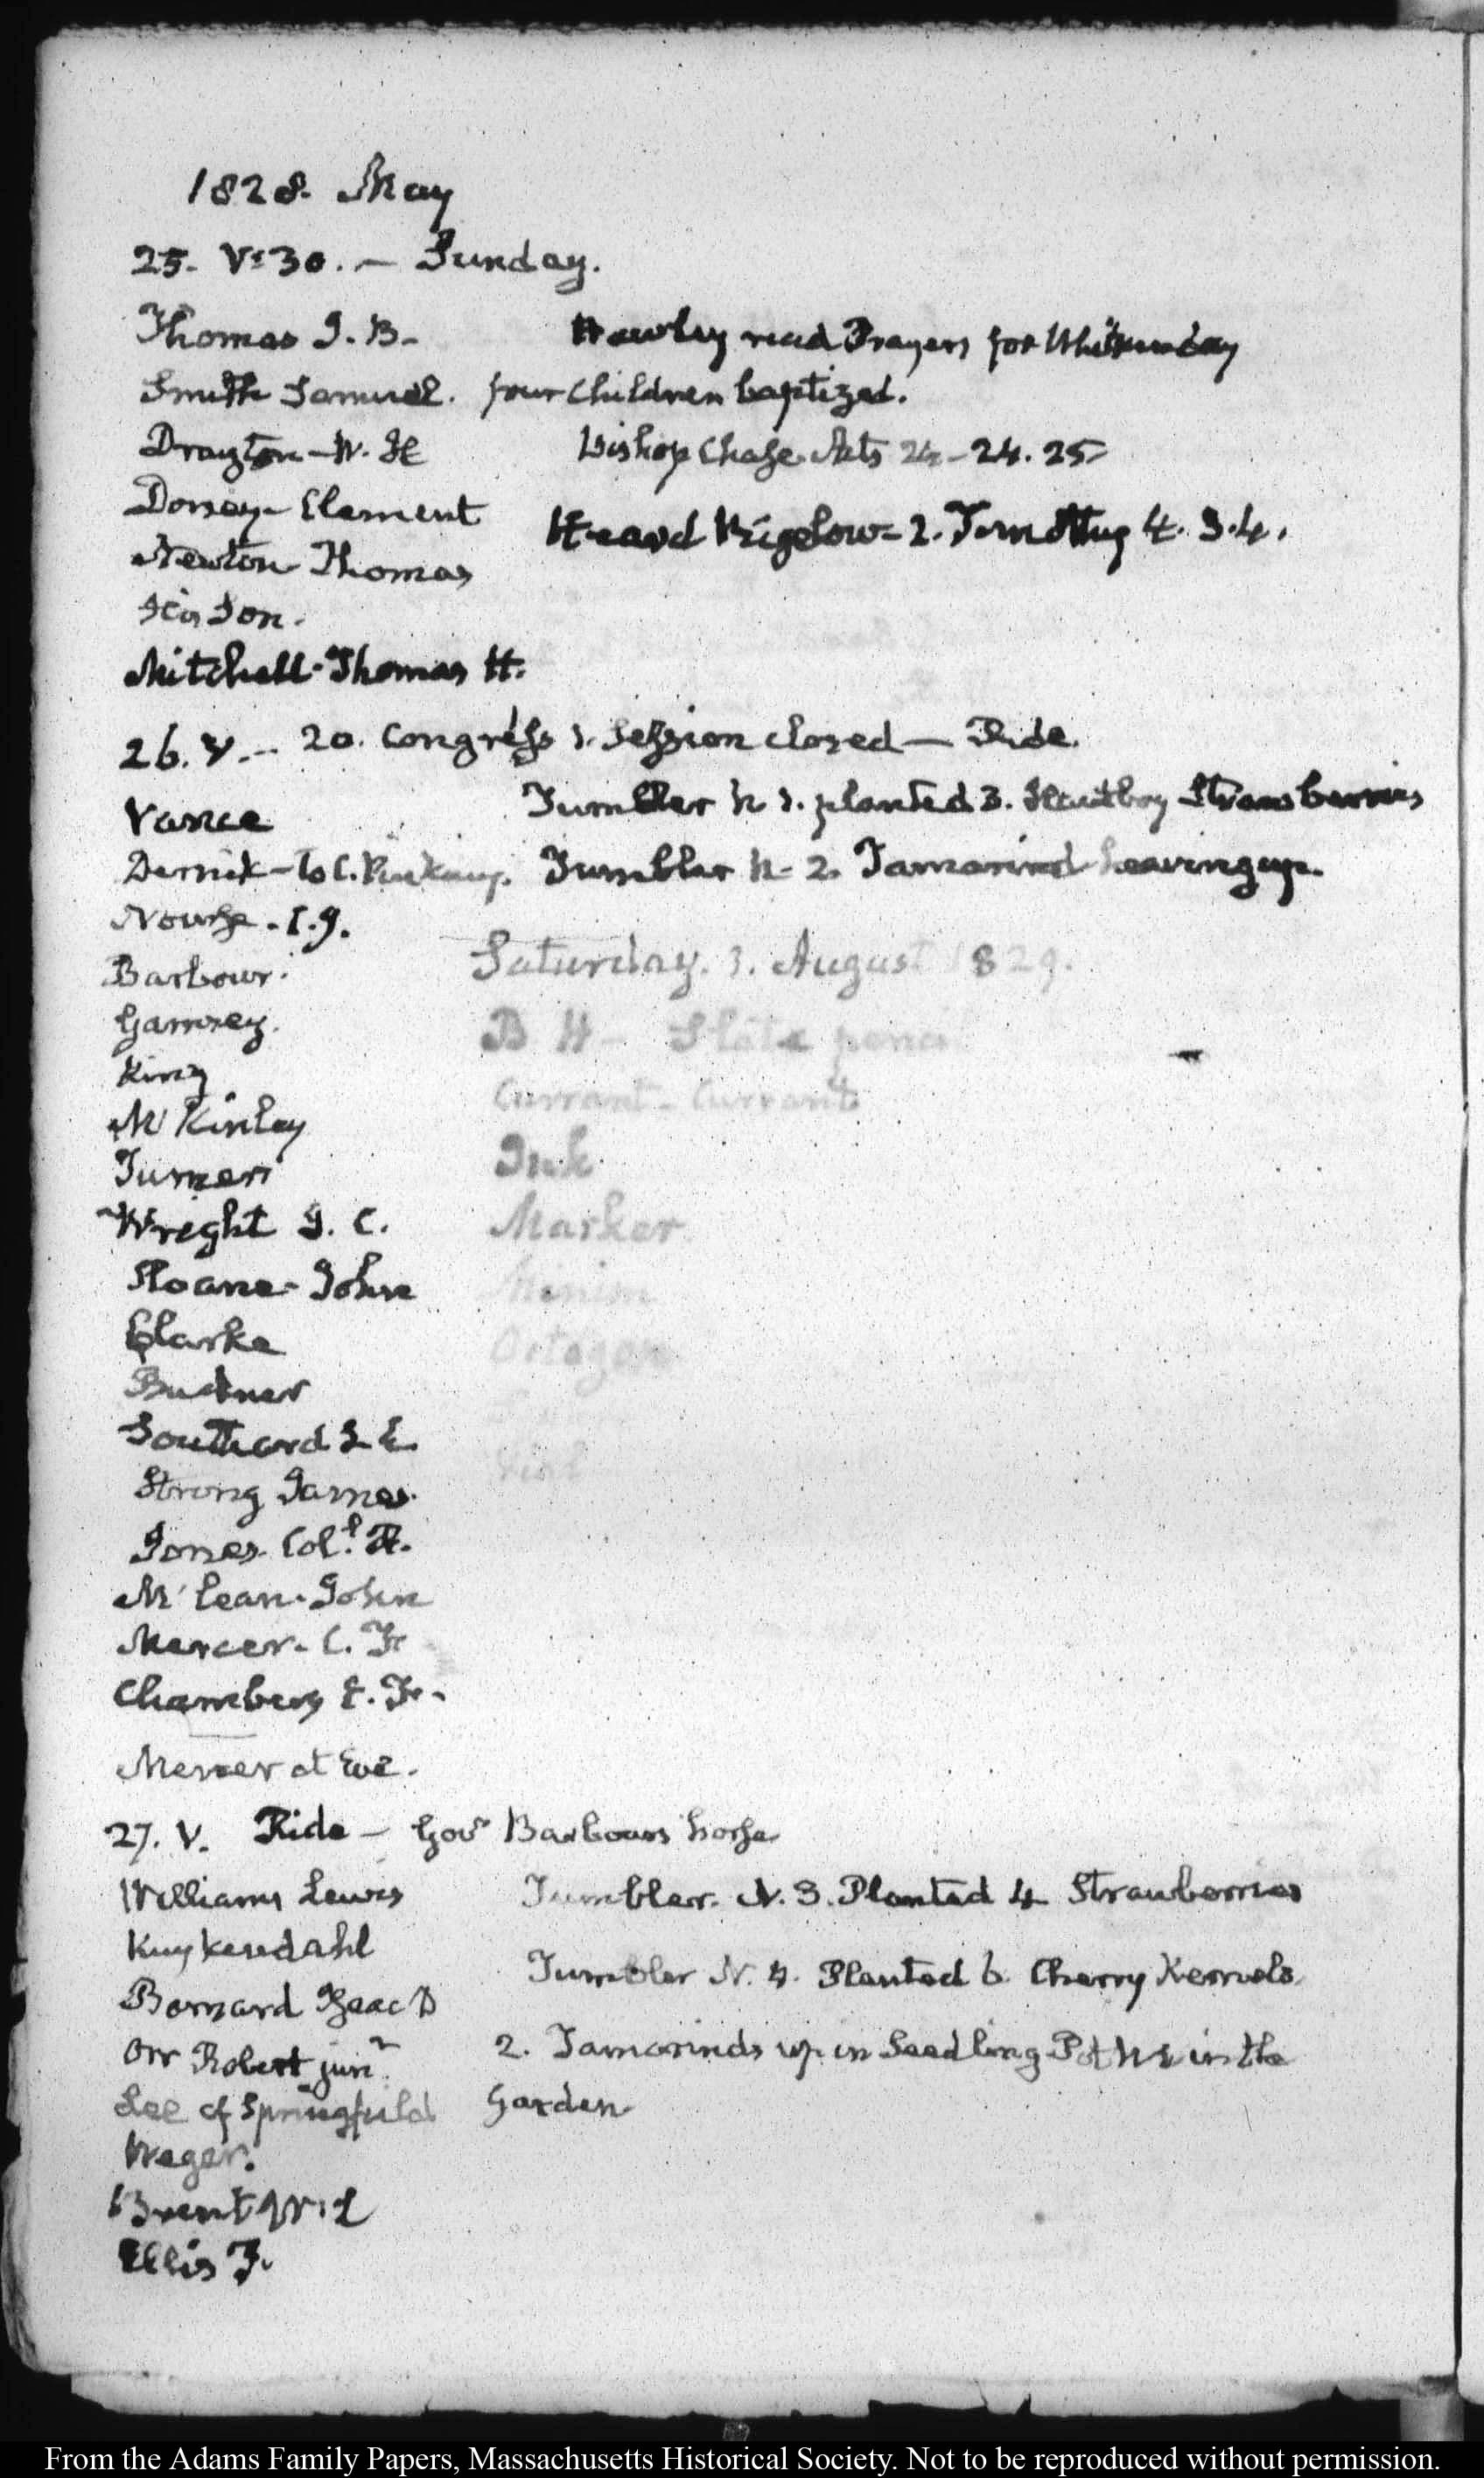 1828. May
25. V:30. — Sunday.
Thomas J. B. Hawley read Prayers for Whitsunday
Smith Samuel. four Children baptized.
Drayton - W. Bishop Chase Acts 24 - 24. 25
Dorsey - Clement
Heard Bigelow - 2. Timothy 4. 3. 4.
Newton Thomas
His Son.
Mitchell - Thomas H.
26. V. — 20. Congress 1. Session closed — Ride.
Vance Tumbler N 1. planted 3. Hautboy Strawberries
to C. Tumbler N. 2. Tamarind heaving up.
Nourse. I. J.
Barbour. Saturday. 1. August 1829.
Gamsey. B H - Slate
King Currant - Currants
McKinley
Turner Ink
Wright J. C. Marker
Sloane - John Minim
Clarke Octagon
Buckner
Southard S. L.
Strong James.
Jones. Coll. R.
McLean. John
Mercer. C. F.
Chambers E. F.
Mercer at Eve.
27. V. Ride — Govr Barbours horse
Williams Lewis Tumbler. N. 3. Planted 4 Strawberries
Kuykendahl
Tumbler N. 4. Planted 6. Cherry Kernels.
Barnard Isaac D
Orr Robert junr. 2. Tamarinds up in Seedling Pot N 1 in the
Lee of Springfield Garden
Weger.
Brent W. L
Ellis
From the Adams Family Papers, Massachusetts Historical Society. Not to be reproduced without permission.